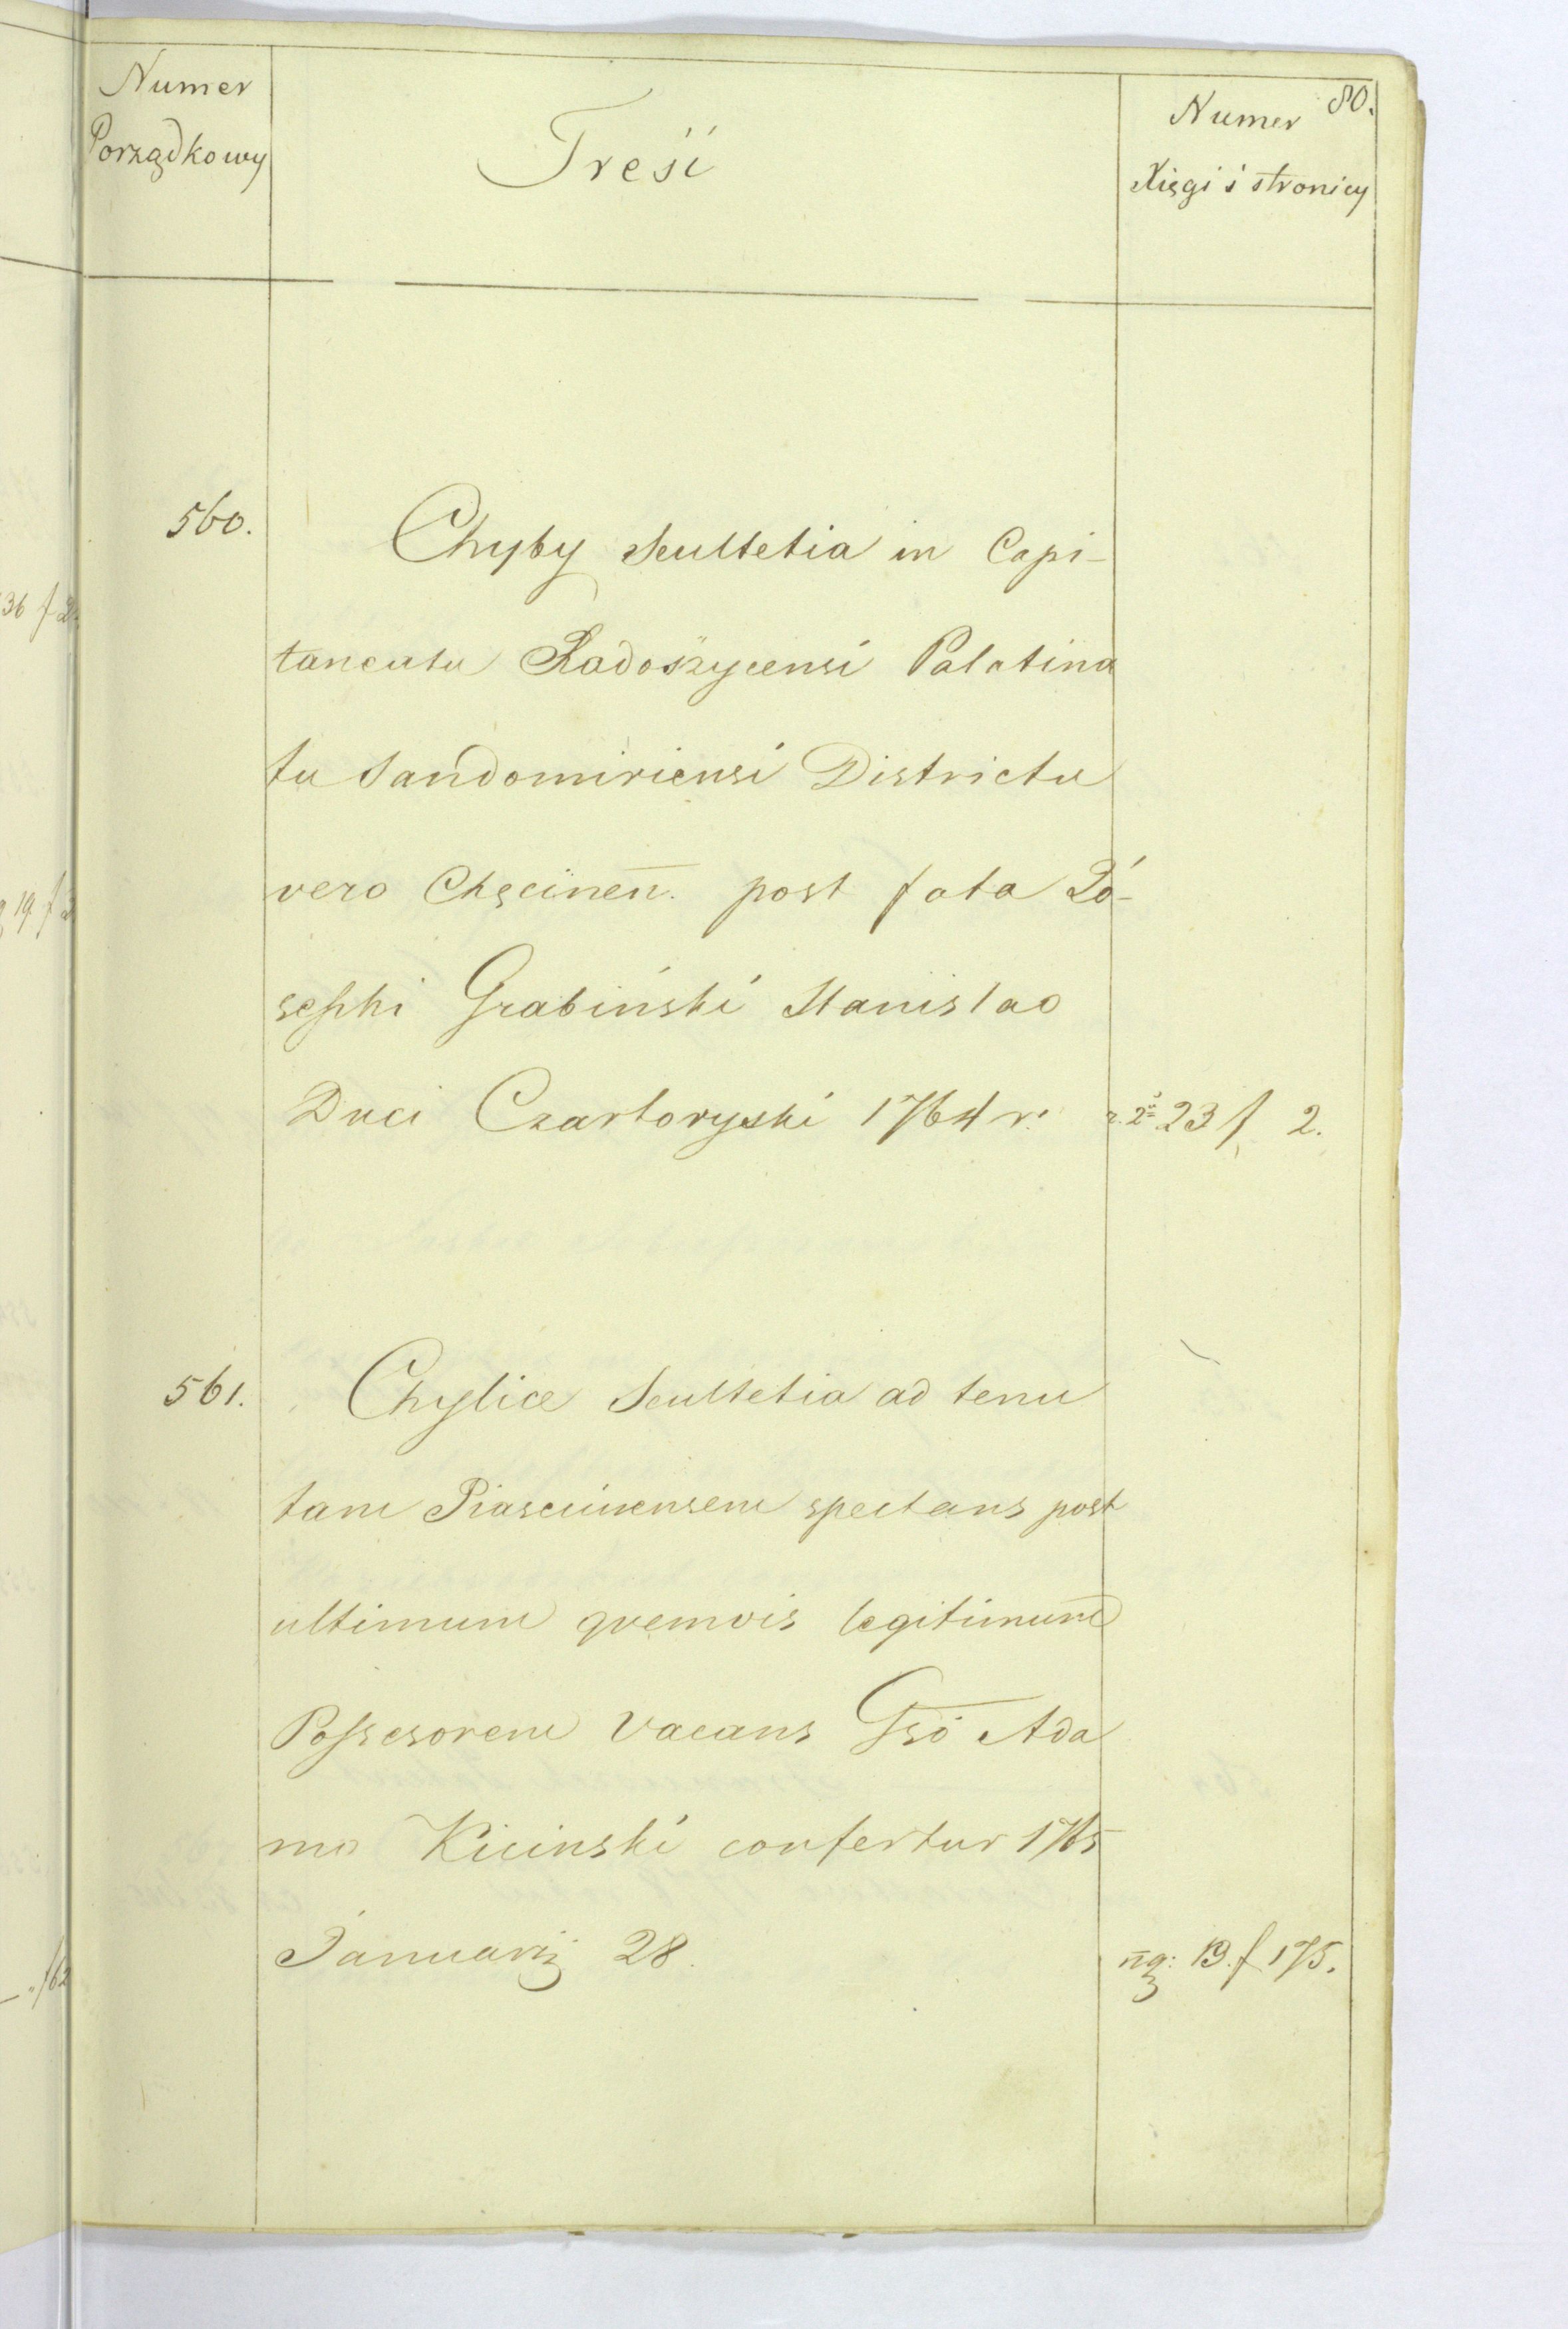 Numer
Porządkowy
Treść
80.
Numer
Xięgi i stronicy
560.
Chyby Scultetia in Capi-
taneatu Radoszycensi Palatina
tu Sandomiriensi Districtu
vero Chęcinen̄. post fata Jó-
sephi Grabiński Stanislao
Duci Czartoryski 1764 r.
23 f 2.
561.
Chylice Scultetia ad tenu
tam Piasecinensem spectans post
ultimum qvemvis legitimum
Possesorem vacans Gsō Ada
mo Kicinski confertur 1765
Januarij 28.
19. f 175.
36 f
19 f